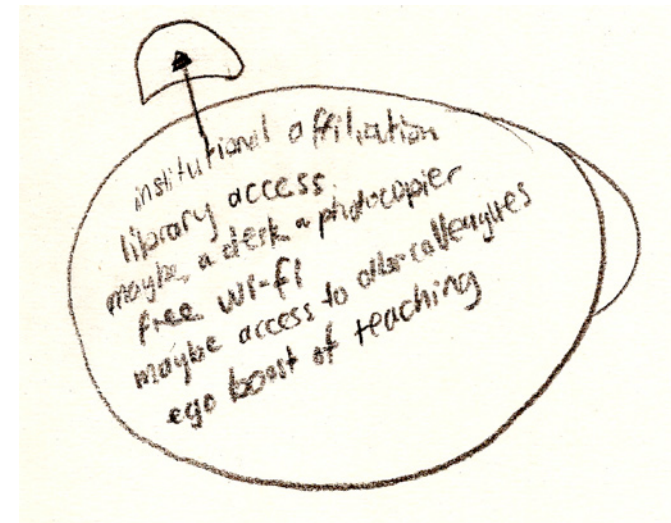 institutional affiliation
library access
maybe a desk a photocopier
free wi-fi
maybe access to other colleagues
ego boost of teaching